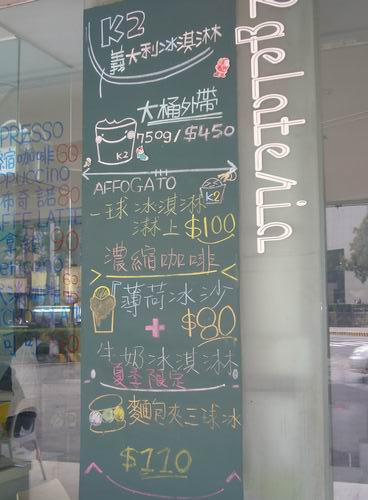 K2
義大利冰淇淋
大桶外帶
K2
750g/$450
AFFOGATO
K2
一球冰淇淋
淋上$100
濃縮咖啡
『薄荷冰沙
+ $80
牛奶冰淇淋
夏季限定
麵包夾三球冰
$110
gelateria
PRESSO
縮咖啡60
ppuccino
布奇諾80
FFE LATTE
拿鐵90